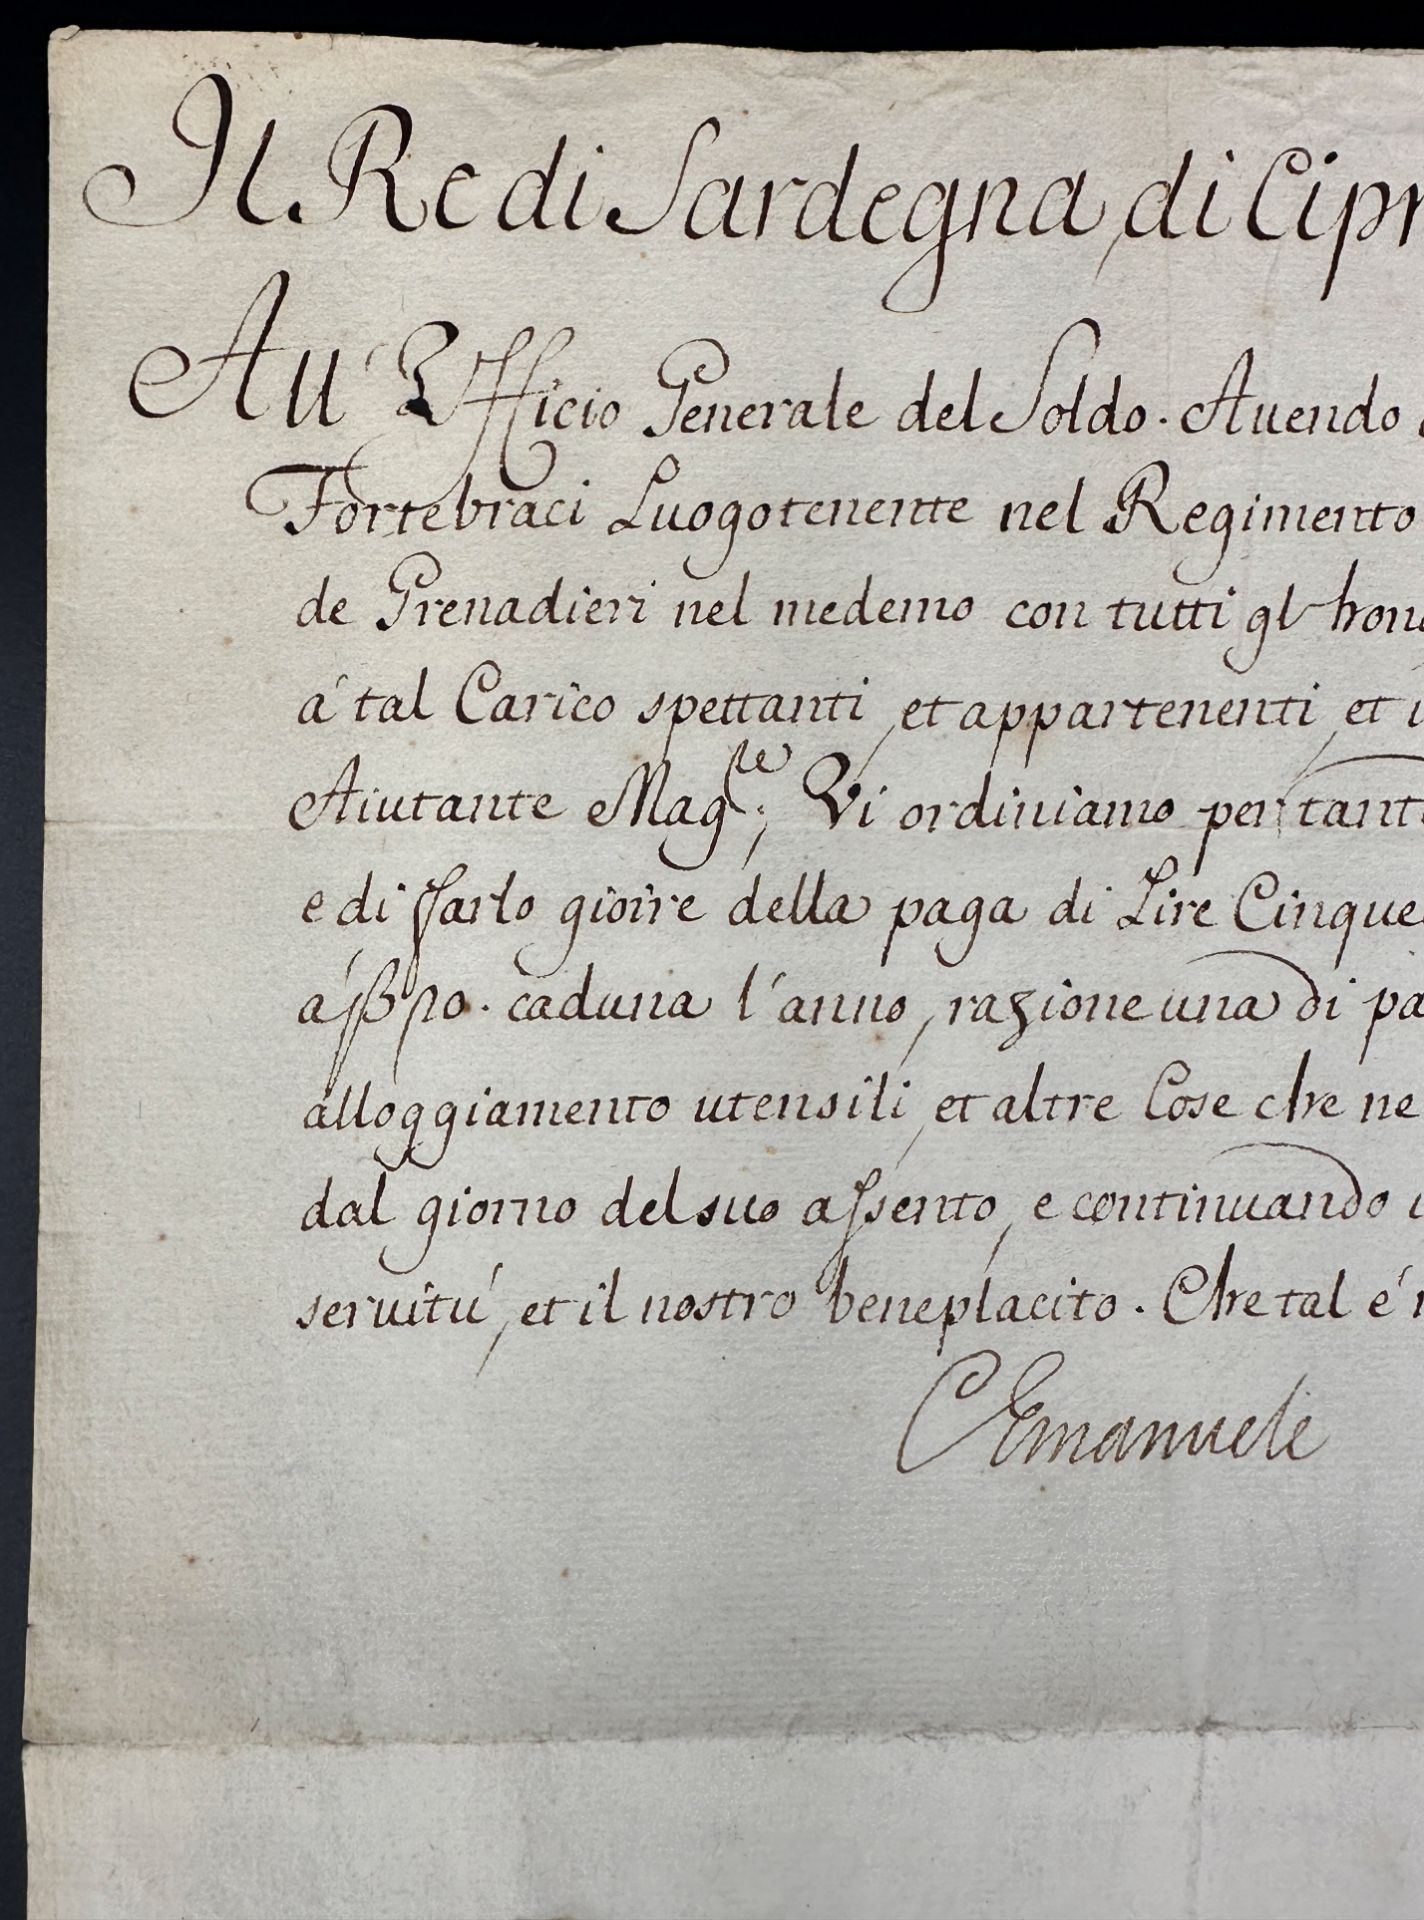 Il Re di Sardegna, di Cipr
All' Ufficio Generale del Soldo. Auendo
Fortebraci Luogotenente nel Regimento
de Grenadieri nel medemo con tutti gl' hono
á tal Carico spettanti, et appartenenti, et i
Aiutante Mag.re; Vi ordiniamo per tant
e di farlo gioire della paga di Lire Cinque
caduna l'anno, razione una di pa
alloggiamento utensili, et altre Cose che ne
dal giorno del suo assento, e continuando
seruitú, et il nostro beneplacito. Che tal é
CEmanuele